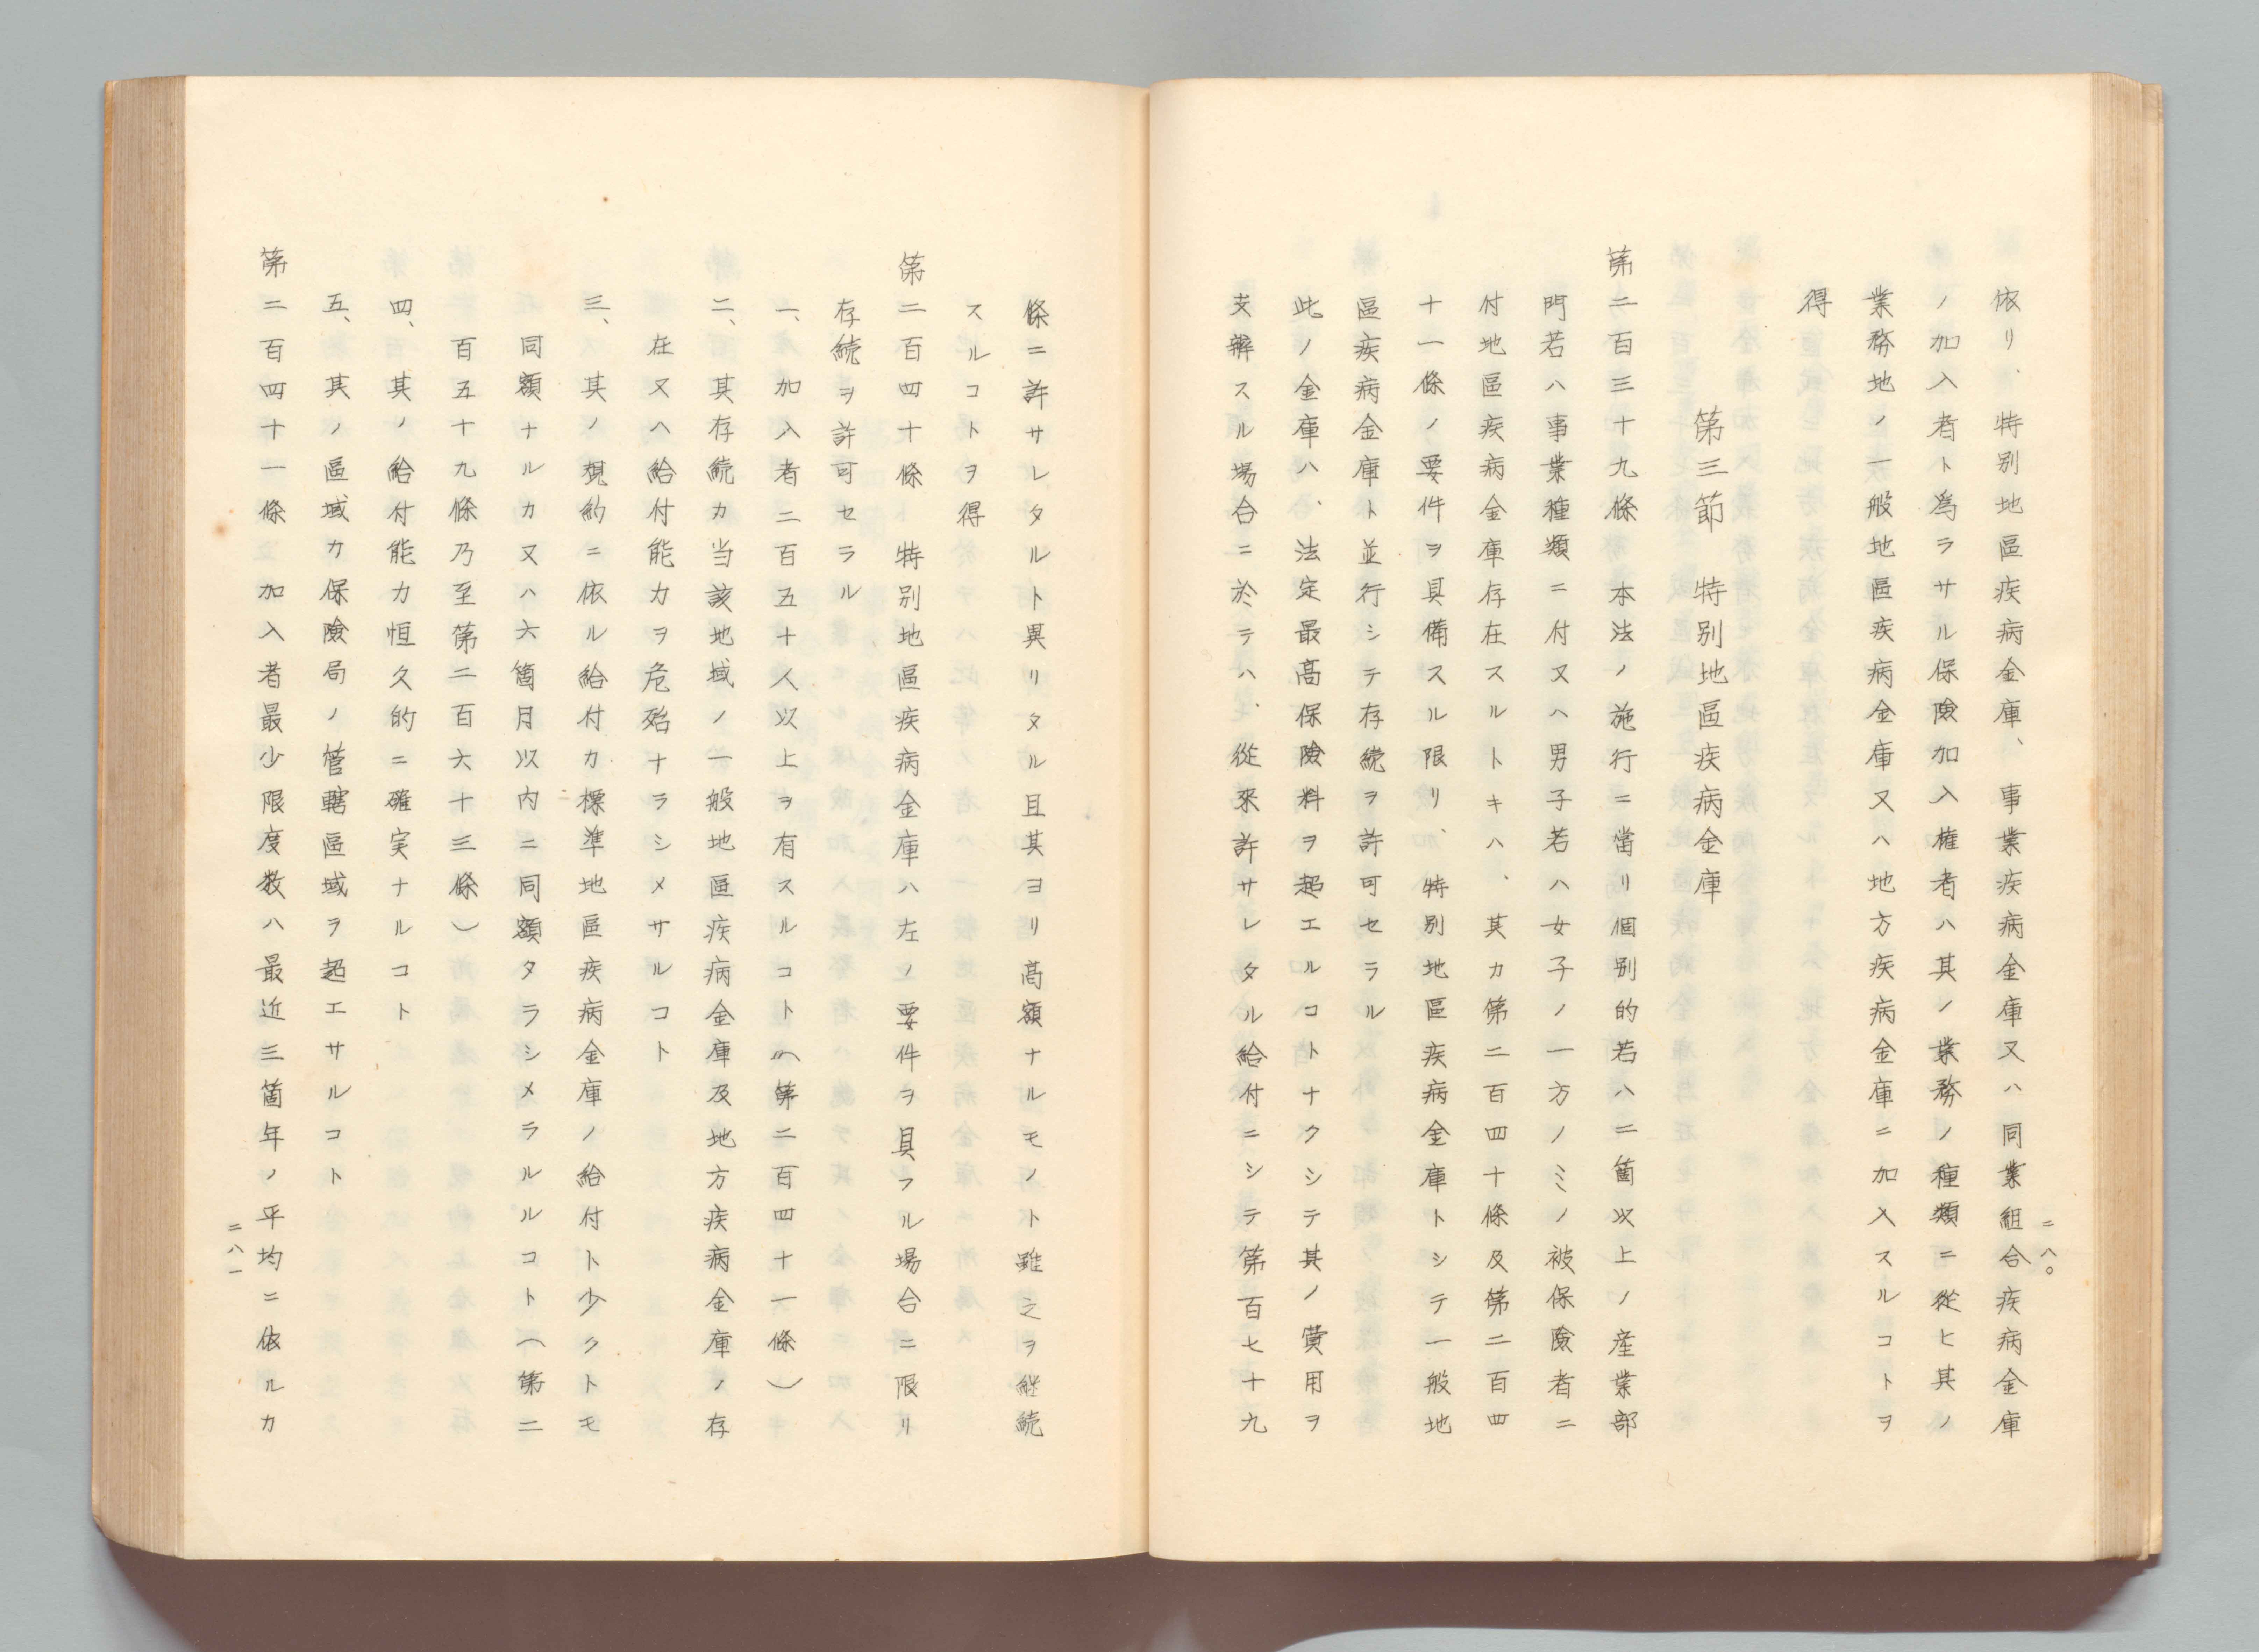 依リ、特別地區疾病金庫、事業疾病金庫又ハ同業組合疾病金庫
ノ加入者ト爲ラサル保險加入権者ハ其ノ業務ノ種類ニ從ヒ其ノ
業務地ノ一般地區疾病金庫又ハ地方疾病金庫ニ加入スルコトヲ
得
第三節 特別地區疾病金庫
第二百三十九條 本法ノ施行ニ當リ個別的若ハ二箇以上ノ産業部
門若ハ事業種類ニ付又ヘ男子若ハ女子ノ一方ノミノ被保險者ニ
付地區疾病金庫存在スルトキハ、其カ第二百四十條及第二百四
十一條ノ要件ヲ具備スル限リ、特別地區疾病金庫トシテ一般地
區疾病金庫ト並行シテ存続ヲ許可セラル
此ノ金庫ハ、法定最高保險料ヲ超エルコトナクシテ其ノ費用ヲ
支辨スル場合ニ於テハ、從来許サレタル給付ニシテ第百七十九
二八〇
條ニ許サレタルト異リタル且其ヨリ高額ナルモノト雖之ヲ継続
スルコトヲ得
第二百四十條 特別地區疾病金庫ハ左ノ要件ヲ具フル場合ニ限リ
存続ヲ許可セラル
一、加入者二百五十人以上ヲ有スルコト(第二百四十一條)
二、其存続カ当該地域ノ一般地區疾病金庫及地方疾病金庫ノ存
在又ヘ給付能力ヲ危殆ナラシメサルコト
三、其ノ規約ニ依ル給付カ標準地區疾病金庫ノ給付ト少クトモ
同額ナルカ又ハ六箇月以内ニ同額タラシメラルルコト(第二
百五十九條乃至第二百六十三條)
四、其ノ給付能力恒久的ニ確実ナルコト
五、其ノ區域カ保險局ノ管轄區域ヲ超エサルコト
第二百四十一條 加入者最少限度数ハ最近三箇年ノ平均ニ依ルカ
二八一